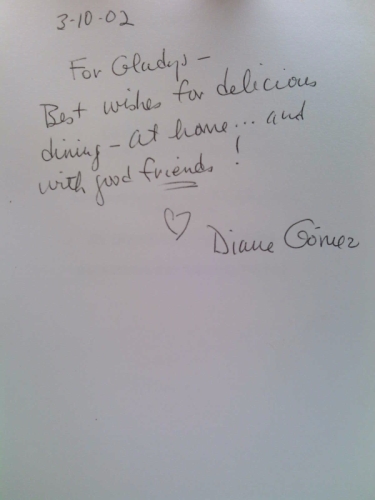 3-10-02
For Gladys -
Best wishes for delicious
dining - at home... and
with good friends!
♡ Diane Gómez